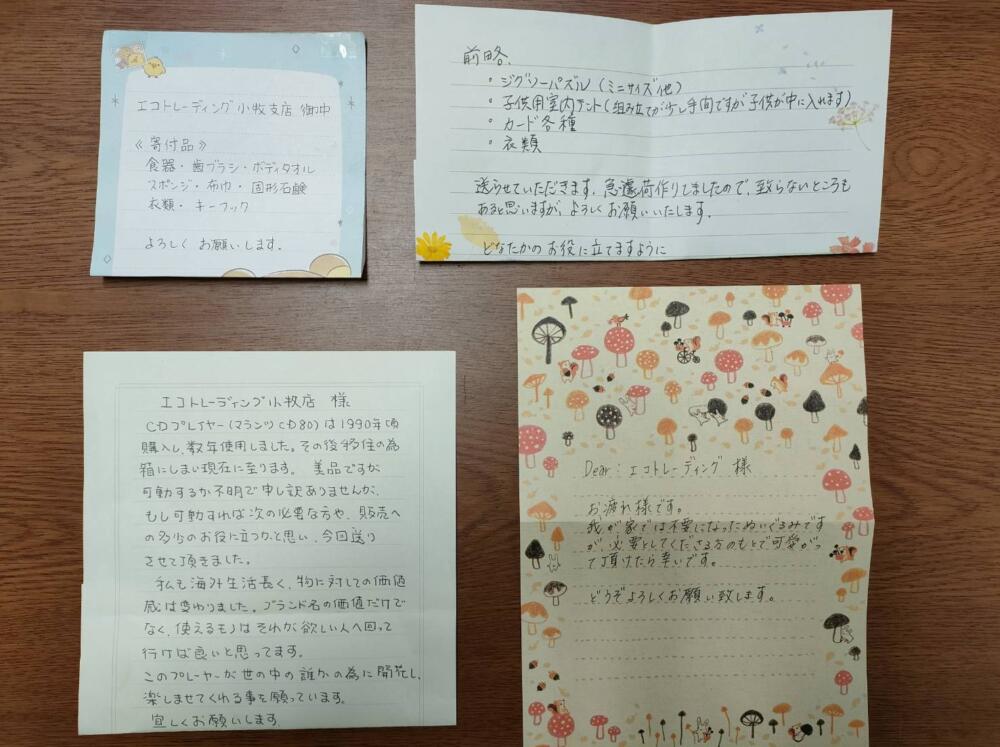 エコトレーディング小牧支店 御中
《寄付品》
食器・歯ブラシ・ボディタオル
スポンジ・布巾・固形石鹸
衣類・キーフック
よろしく お願いします。
前略、
・ジグソーパズル(ミニサイズ他)
・子供用室内テント(組み立てが少し手間ですが子供が中に入れます)
・カード各種
・衣類
送らせていただきます。急遽荷作りしましたので、至らないところも
あると思いますが、よろしくお願いいたします。
どなたかのお役に立てますように
エコトレーディング小牧店 様
CDプレイヤー(マランツCD80)は1990年頃
購入し、数年使用しました。その後移住の為
箱にしまい現在に至ります。 美品ですが
可動するか不明で申し訳ありませんが、
もし可動すれば次の必要な方や、販売へ
の多少のお役に立つかと思い、今回送り
させて頂きました。
私も海外生活長く、物に対しての価値
感は変わりました。ブランド名の価値だけで
なく、使えるモノはそれが欲しい人へ回って
行けば良いと思ってます。
このプレーヤーが世の中の誰かの為に開花し、
楽しませてくれる事を願っています。
宜しくお願いします
Dear:エコトレーディング 様
お疲れ様です。
我が家では不要になったぬいぐるみです
が、必要としてくださる方のもとで可愛がっ
て頂けたら幸いです。
どうぞよろしくお願い致します。